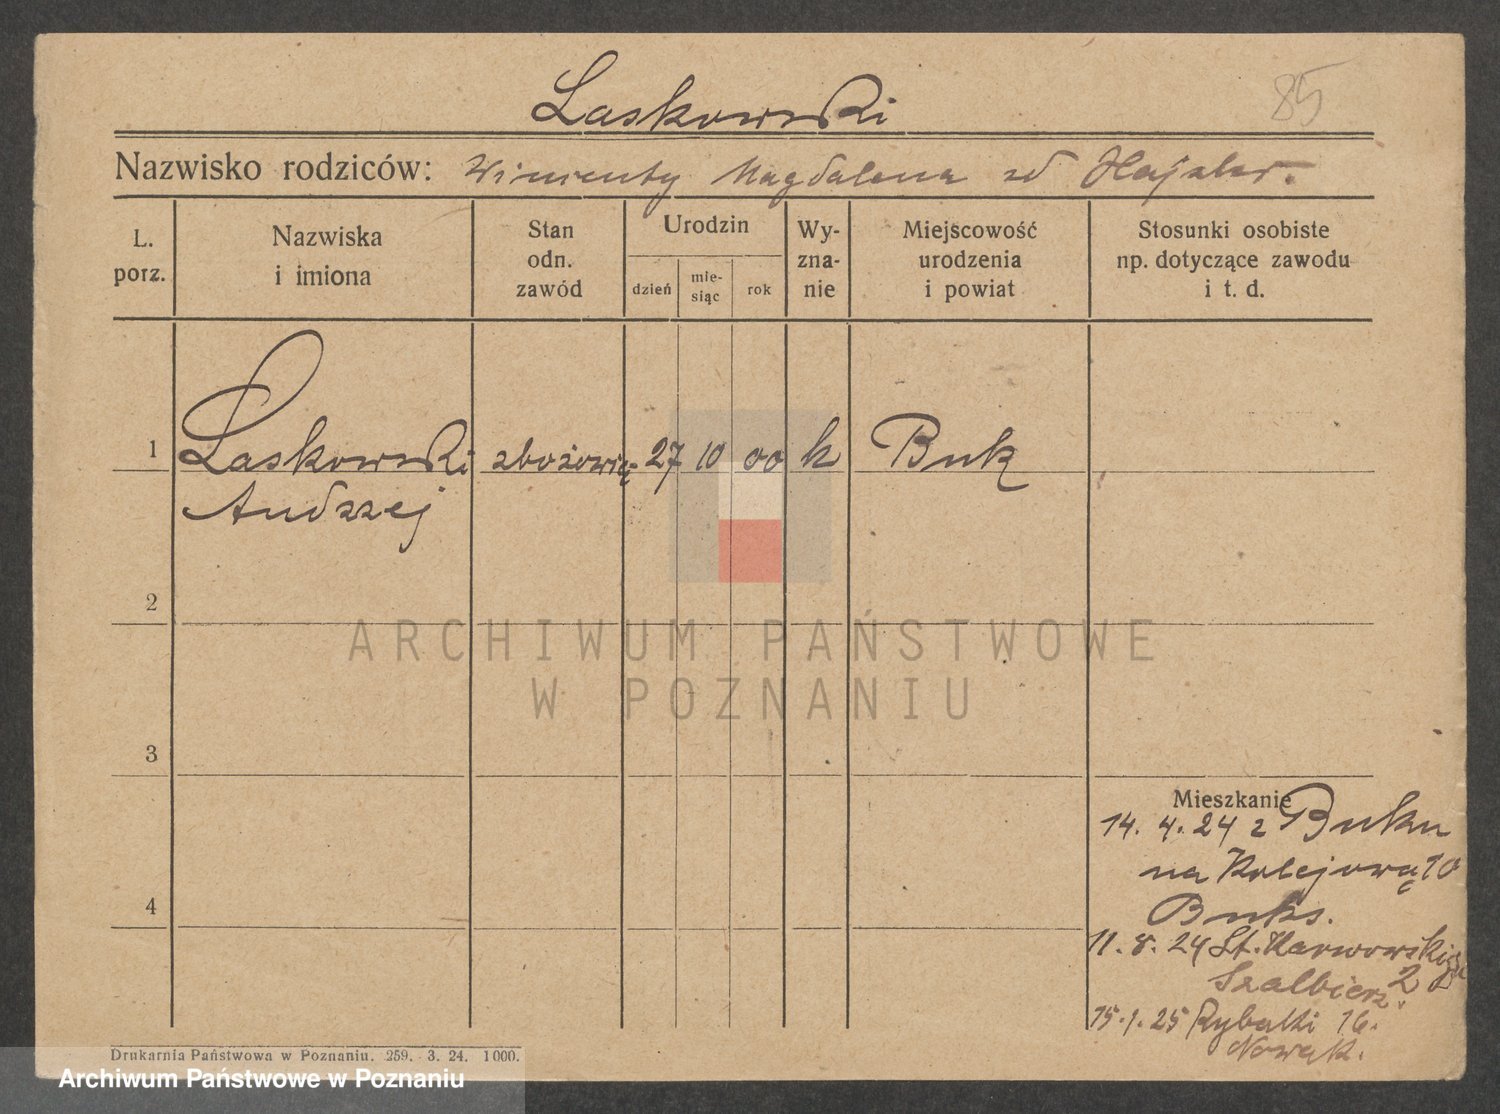 Laskowski
85
Nazwisko rodziców: Wincenty Magdalena zd
L. porz.
Nazwiska i imiona
Stan odn. zawód
Urodzin
dzień
mie-siąc
rok
Wy-zna-nie
Miejscowość urodzenia i powiat
Stosunki osobiste np. dotyczące zawodu i t. d.
1 Laskowski zbożowiec 27 10 00 k Buk
Andrzej
2
ARCHIWUM PAŃSTWOWE
W POZNANIU
3
Mieszkanie
14. 4. 24 z Buku
na Kolejową 10
Buks.
4
11. 8. 24 St. Karwowskiego
Szalbierz. 2
15. 1. 25 Rybaki 16.
Nowak.
Drukarnia Państwowa w Poznaniu. 259. 3. 24. 1000.
Archiwum Państwowe w Poznaniu